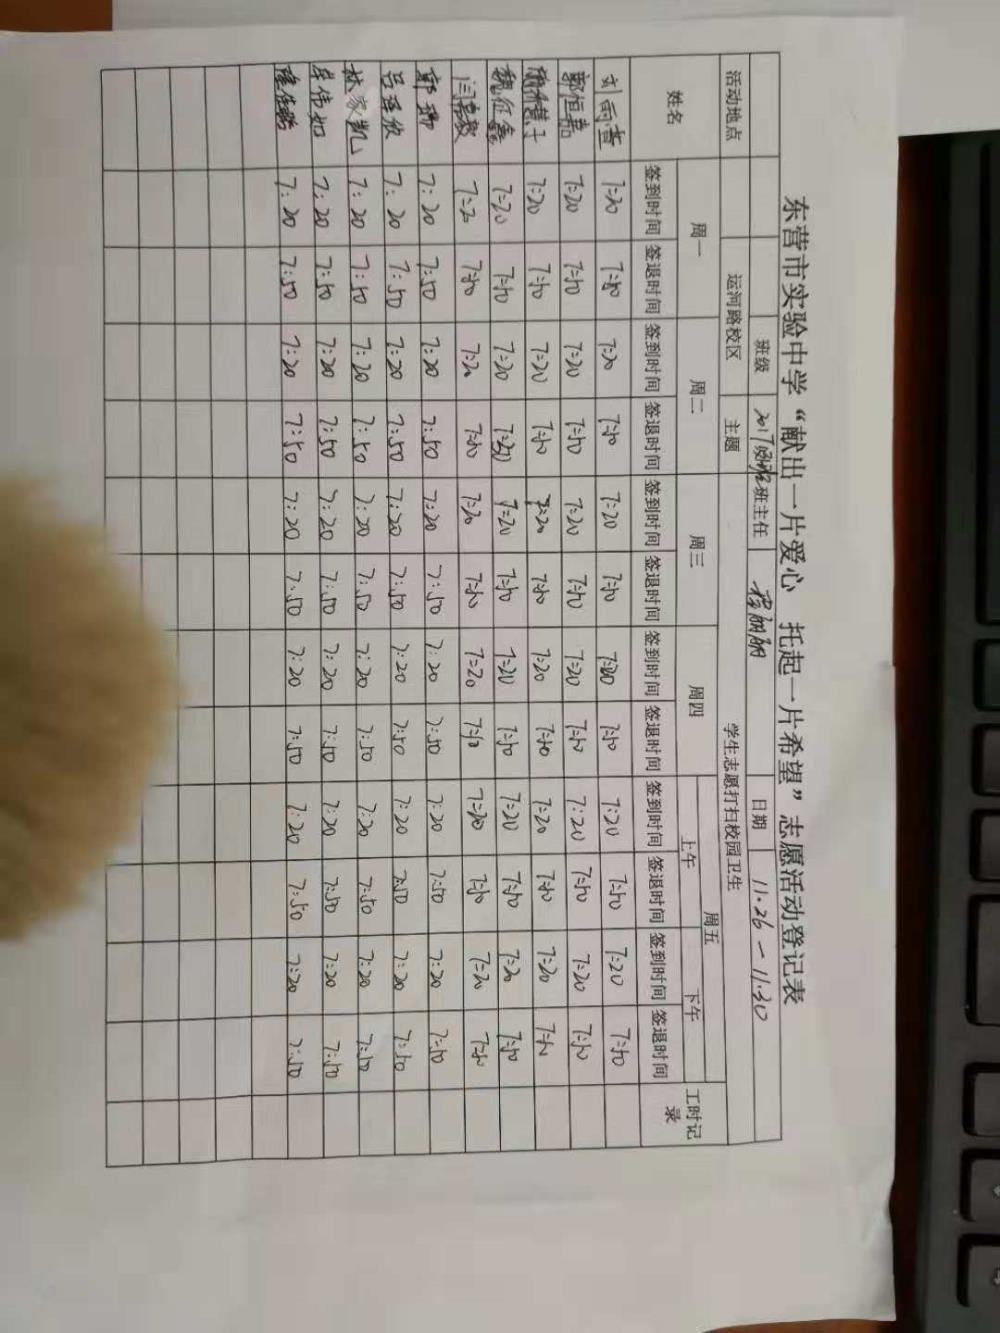 东营市实验中学“献出一片爱心 托起一片希望”志愿活动登记表
班级 班主任 日期 11.26-11.30
活动地点 运河路校区 主题 学生志愿打扫校园卫生
姓名 周一 周二 周三 周四 周五 工时记录
上午 下午
签到时间 签退时间 签到时间 签退时间 签到时间 签退时间 签到时间 签退时间 签到时间 签退时间 签到时间 签退时间
7:20 7:50 7:20 7:50 7:20 7:50 7:20 7:50 7:20 7:50 7:20 7:50
郭恒嘉 7:20 7:50 7:20 7:50 7:20 7:50 7:20 7:50 7:20 7:50 7:20 7:50
7:20 7:50 7:20 7:50 7:20 7:50 7:20 7:50 7:20 7:50 7:20 7:50
魏征鑫 7:20 7:50 7:20 7:50 7:20 7:50 7:20 7:50 7:20 7:50 7:20 7:50
7:20 7:50 7:20 7:50 7:20 7:50 7:20 7:50 7:20 7:50 7:20 7:50
7:20 7:50 7:20 7:50 7:20 7:50 7:20 7:50 7:20 7:50 7:20 7:50
7:20 7:50 7:20 7:50 7:20 7:50 7:20 7:50 7:20 7:50 7:20 7:50
林家凯 7:20 7:50 7:20 7:50 7:20 7:50 7:20 7:50 7:20 7:50 7:20 7:50
7:20 7:50 7:20 7:50 7:20 7:50 7:20 7:50 7:20 7:50 7:20 7:50
7:20 7:50 7:20 7:50 7:20 7:50 7:20 7:50 7:20 7:50 7:20 7:50